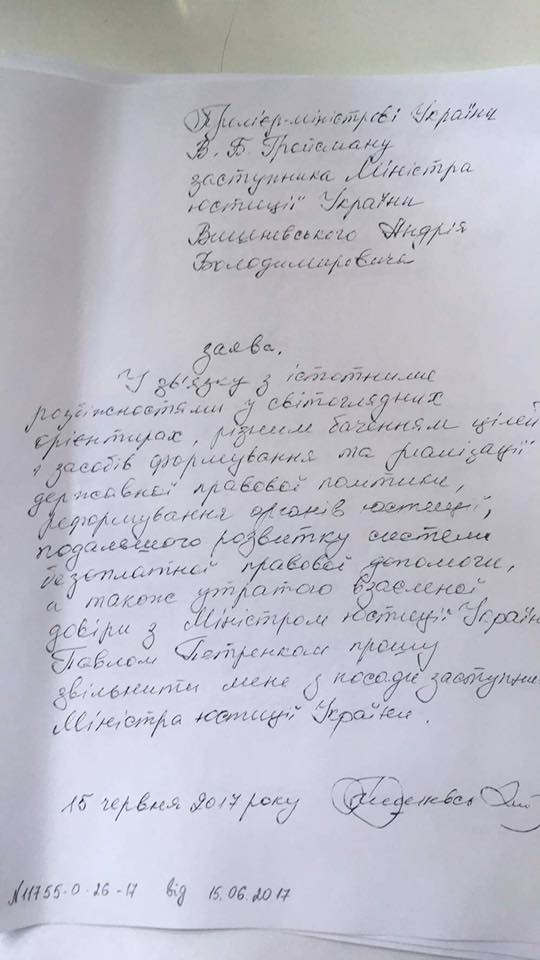 Прем'єр-міністрові України
В. Б Гройсману
заступника Міністра
юстиції України
Вишневського Андрія
Володимировича
заява.
У зв'язку з істотними
розбіжностями у світоглядних
орієнтирах, різним баченням цілей
і засобів формування та реалізації
державної правової політики,
реформування органів юстиції,
подальшого розвитку системи
безоплатної правової допомоги,
а також утратою взаємної
довіри з Міністром юстиції Україн
Павлом Петренком прошу
звільнити мене з посади заступни
Міністра юстиції України.
15 червня 2017 року
N11755-0-26-17 від 15.06.2017